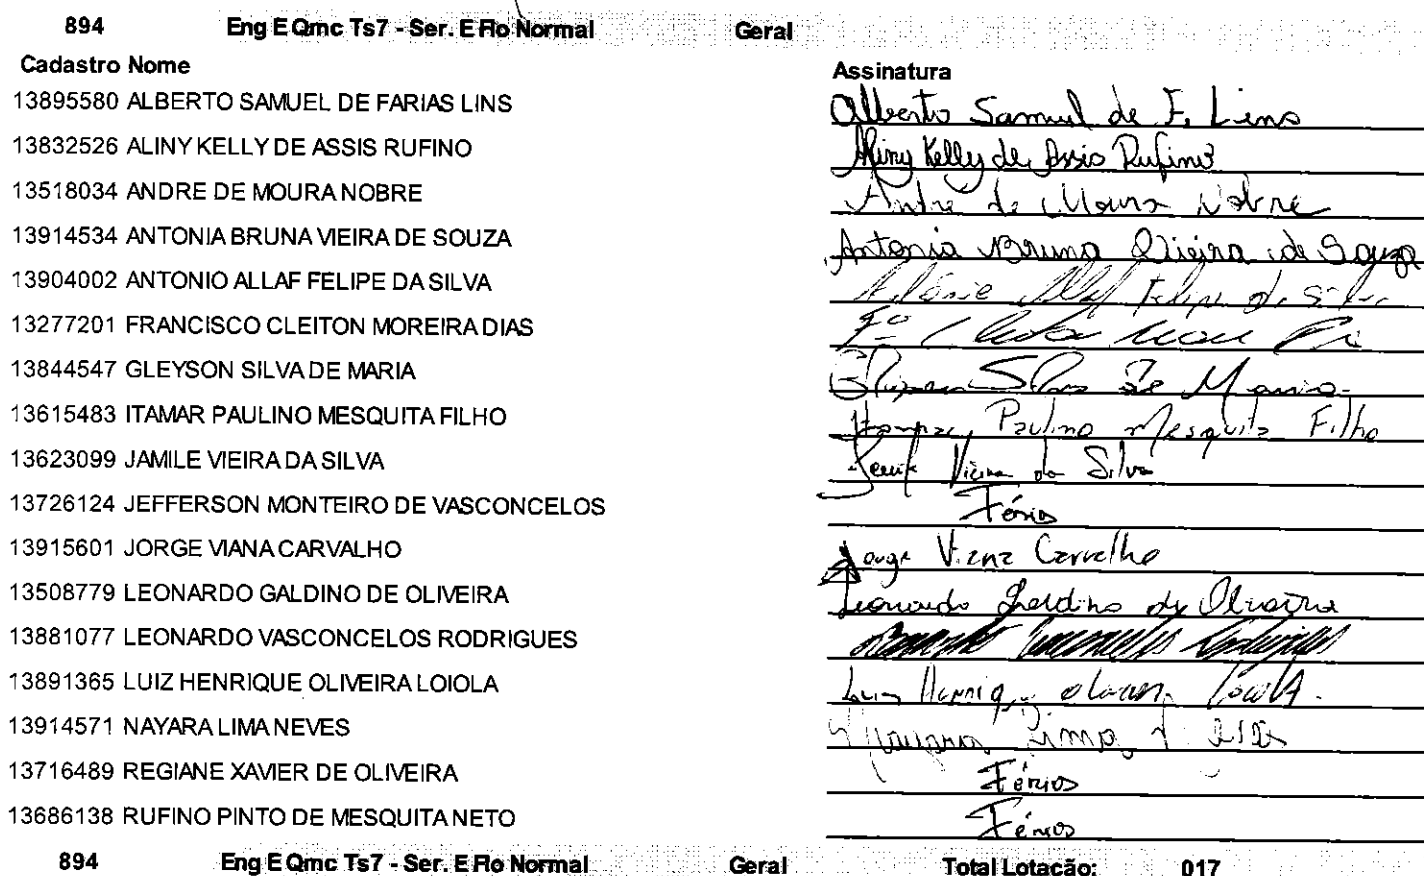 894 Eng E Qmc Ts7 - Ser. E Flo Normal Geral
Cadastro Nome Assinatura
13895580 ALBERTO SAMUEL DE FARIAS LINS Alberto Samuel de F. Lins
13832526 ALINY KELLY DE ASSIS RUFINO Aliny Kelly de Assis Rufino
13518034 ANDRE DE MOURA NOBRE André de Moura Nobre
13914534 ANTONIA BRUNA VIEIRA DE SOUZA Antonia Bruna Vieira de Souza
13904002 ANTONIO ALLAF FELIPE DA SILVA Antônio Allaf Felipe da Silva
13277201 FRANCISCO CLEITON MOREIRA DIAS Fº
13844547 GLEYSON SILVA DE MARIA Gleyson Silva de Maria
13615483 ITAMAR PAULINO MESQUITA FILHO Itamar Paulino Mesquita Filho
13623099 JAMILE VIEIRA DA SILVA Jamile Vieira da Silva
13726124 JEFFERSON MONTEIRO DE VASCONCELOS Férias
13915601 JORGE VIANA CARVALHO Jorge Viana Carvalho
13508779 LEONARDO GALDINO DE OLIVEIRA Leonardo Galdino de Oliveira
13881077 LEONARDO VASCONCELOS RODRIGUES
13891365 LUIZ HENRIQUE OLIVEIRA LOIOLA Luiz
13914571 NAYARA LIMA NEVES Nayara Lima
13716489 REGIANE XAVIER DE OLIVEIRA Férias
13686138 RUFINO PINTO DE MESQUITA NETO Férias
894 Eng E Qmc Ts7 - Ser. E Flo Normal Geral Total Lotação: 017